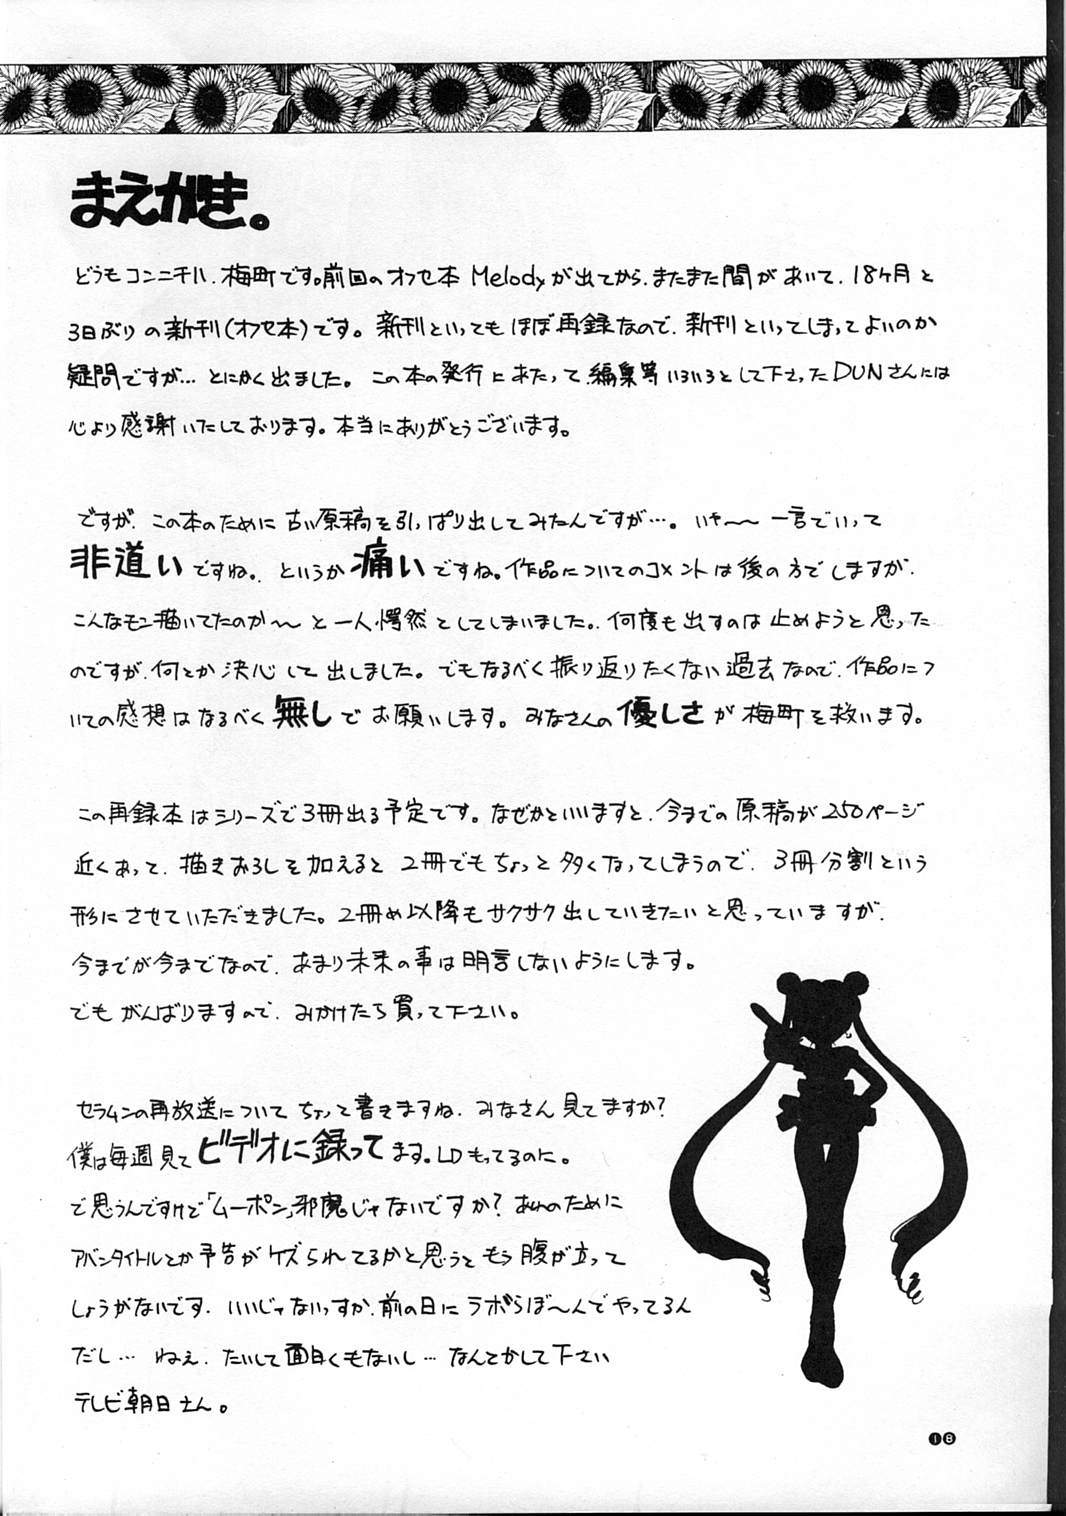 まえがき。
どうもコンニチハ、梅町です。前回のオフセ本 Melodyが出てから、またまた間があいて、18ヶ月と
3日ぶりの新刊(オフセ本)です。新刊といってもほぼ再録なので、新刊といってしまってよいのか
疑問ですが…とにかく出ました。この本の発行にあたって、編集等いろいろとして下さったDUNさんには
心より感謝いたしております。本当にありがとうございます。
ですが、この本のために古い原稿を引っぱり出してみたんですが…。いや〜〜一言でいって
非道いですね。というか痛いですね。作品についてのコメントは後の方でしますが、
こんなモン描いてたのか〜〜と一人愕然としてしまいました。何度も出すのは止めようと思った
のですが、何とか決心して出しました。でもなるべく振り返りたくない過去なので、作品につ
いての感想はなるべく無しでお願いします。みなさんの優しさが梅町を救います。
この再録本はシリーズで3冊出る予定です。なぜかといいますと、今までの原稿が250ページ
近くあって、描きおろしを加えると2冊でもちょっと多くなってしまうので、3冊分割という
形にさせていただきました。2冊め以降もサクサク出していきたいと思っていますが、
今までが今までなので、あまり未来の事は明言しないようにします。
でもがんばりますので、みかけたら買って下さい。
セラムンの再放送についてちょっと書きますね。みなさん見てますか?
僕は毎週見てビデオに録ってます。LDもってるのに。
で思うんですけど「ムーポン」邪魔じゃないですか?あれのために
アバンタイトルとか予告がケズられてるかと思うともう腹が立って
しょうがないです。いいじゃないっすか、前の日にラボらぼ〜んでやってるん
だし…ねぇ、たいして面白くもないし…なんとかして下さい
テレビ朝日さん。
18